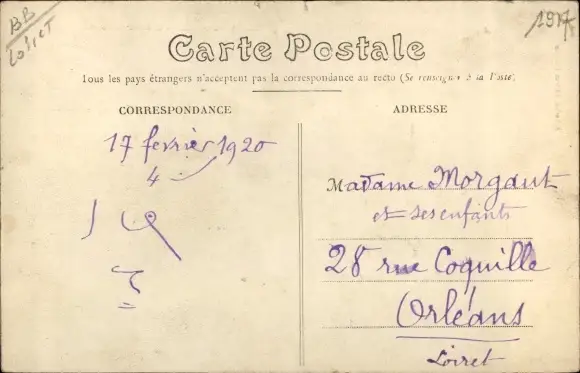 BB
Loiret
1917
Carte Postale
Tous les pays étrangers n'acceptent pas la correspondance au recto (Se renseigner à la Poste)
CORRESPONDANCE
ADRESSE
17 fevrier 1920
4
Madame Morgant
et ses enfants
28 rue Coquille
Orléans
Loiret